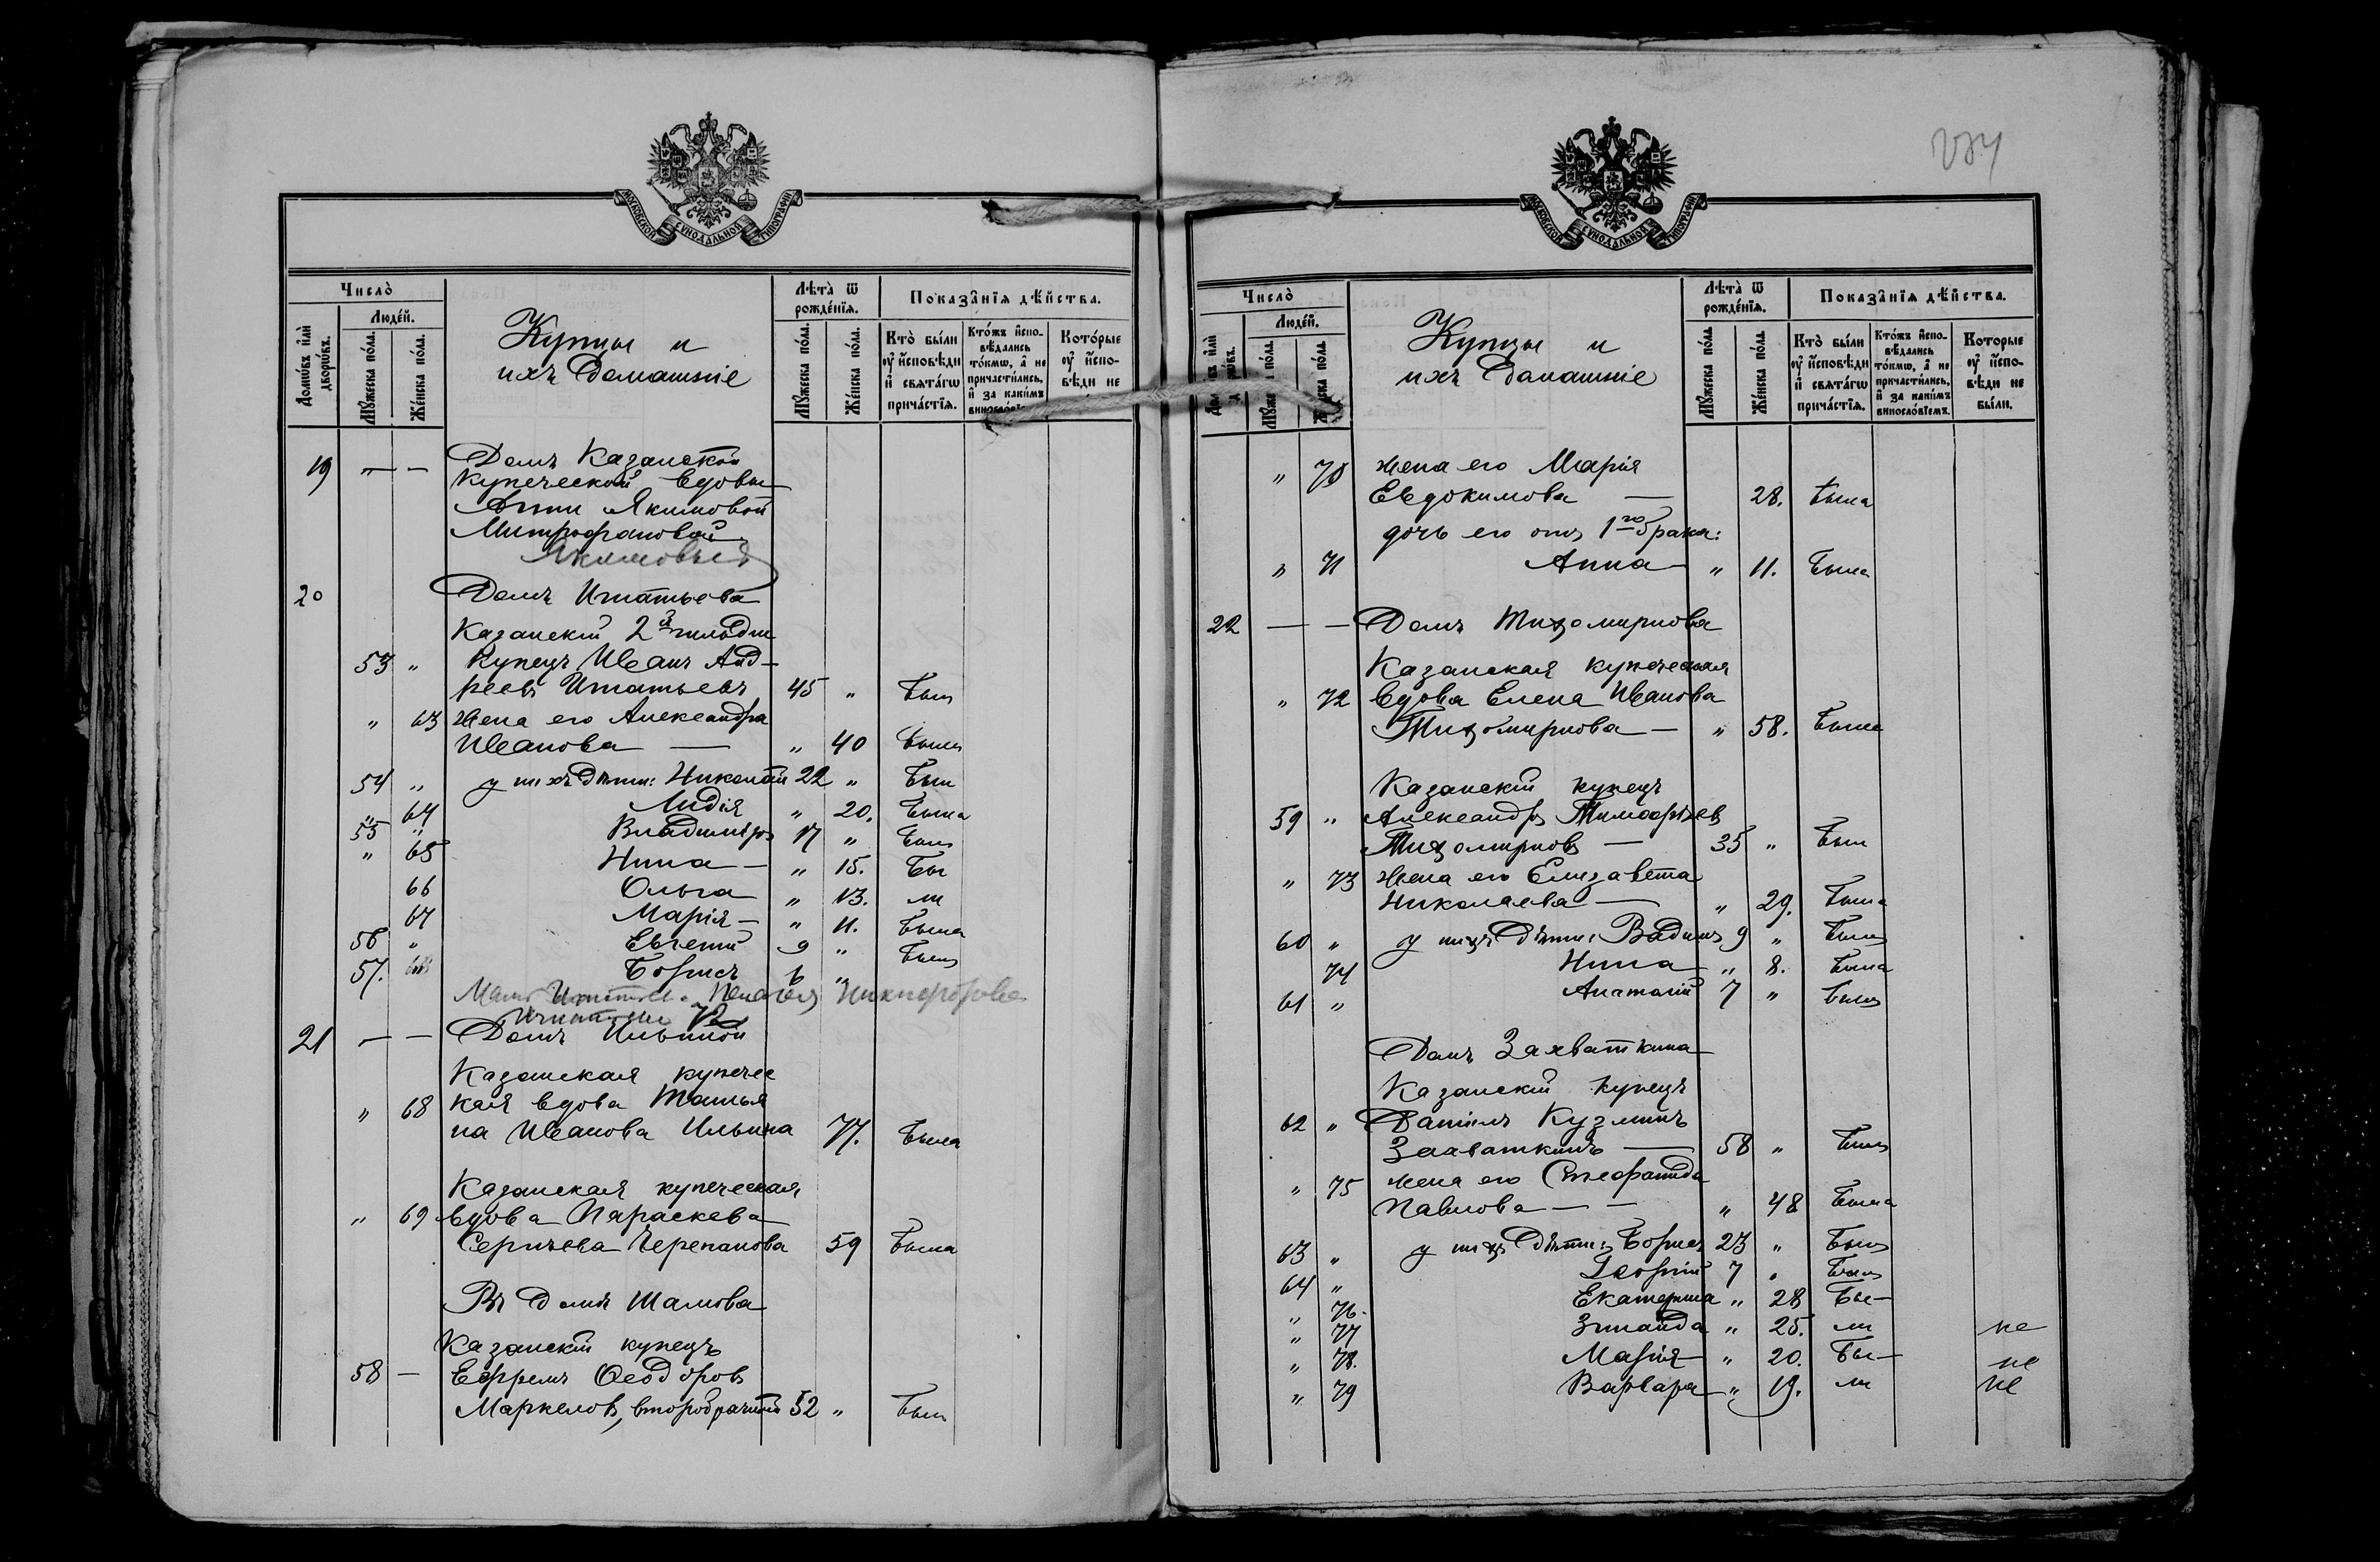 МОСКОВСКОЙ СУНОДАЛЬНОЙ ТИПОГРАФІИ
Число̀
Людє́й.
Домѡ́въ и҆лѝ дворѡ́въ.
Мꙋ́жеска по́ла.
Же́нска по́ла.
Купцы и
ихъ домашніе
Лѣ́та ѿ рожде́нїѧ.
Мꙋ́жеска по́ла.
Же́нска по́ла.
Показа̑нїѧ дѣ́йства.
Кто̀ бы́ли оу҆ и҆сповѣ́ди и҆ свѧта́гѡ прича́стїѧ.
Кто́жъ и҆спо-вѣ́дались то́кмѡ, а҆ не причасти́лись, и҆ за каки́мъ
Кото́рые оу҆ и҆спо-вѣ́ди не
19 — — Домъ Казанской
купеческой вдовы
Анны Якимовой
Митрофановой
Якимовыя
20 Домъ Игнатьева
Казанскій 2й гильдіи
53 " Купецъ Иванъ Анд-
реевъ Игнатьевъ 45 " Былъ
" 63 жена его Александра
Иванова — " 40 Была
54 " у нихъ дѣти: Николай 22 " Былъ
" 64 Лидія " 20. Была
55 " Владиміръ 17 " Былъ
" 65 Нина — " 15. Бы
66 Ольга " 13. ли
67 Марія — " 11. Была
56 " Евгеній 9 " Былъ
57. Борисъ 6 "
Мать Пелагея Никифорова
21 — — Домъ Ильиной
Казанская купечес
" 68 кая вдова Татья
на Иванова Ильина 77. Была
Казанская купеческая
" 69 вдова Параскева
Сергіева Черепанова 59 Была
Въ домѣ Шамова
Казанскій купецъ
58 — Ефремъ Ѳеодоровъ
Маркеловъ, второбрачный 52 " Былъ
МОСКОВСКОЙ СУНОДАЛЬНОЙ ТИПОГРАФІИ
Число̀
Людє́й.
Купцы и
ихъ домашніе
Лѣ́та ѿ рожде́нїѧ.
Мꙋ́жеска по́ла.
Же́нска по́ла.
Показа̑нїѧ дѣ́йства.
Кто̀ бы́ли оу҆ и҆сповѣ́ди и҆ свѧта́гѡ прича́стїѧ.
Кто́жъ и҆спо-вѣ́дались то́кмѡ, а҆ не причасти́лись, и҆ за каки́мъ виносло́вїемъ.
Кото́рые оу҆ и҆спо-вѣ́ди не бы́ли.
" 70 жена его Марія
Евдокимова — 28. Была
дочь его отъ 1го брака:
" 71 Анна — " 11. Была
22 — — Домъ Тихомирнова
Казанская купеческая
" 72 вдова Елена Иванова
Тихомирнова — " 58. Была
Казанскій купецъ
59 " Александръ Тимоѳѣев
Тихомирновъ — 35 " Былъ
" 73 жена его Елизавета
Николаева — " 29. Была
60 " у нихъ дѣти: Вадимъ 9 " Былъ
74 Нина " 8. Была
61 " Анатолій 7 " Былъ
Домъ Захваткина
Казанскій купецъ
62 " Даніилъ Кузминъ
Захваткинъ — 58 " Былъ
" 75 жена его Стефанида
Павлова — — " 48 Была
63 " у нихъ дѣти: Борисъ 23 " Былъ
64 " Георгій 7 " Былъ
" 76. Екатерина " 28 Бы—
" 77 Зинаида " 25. ли не
" 78. Марія — " 20. Бы— не
" 79 Варвара — " 19. ли не